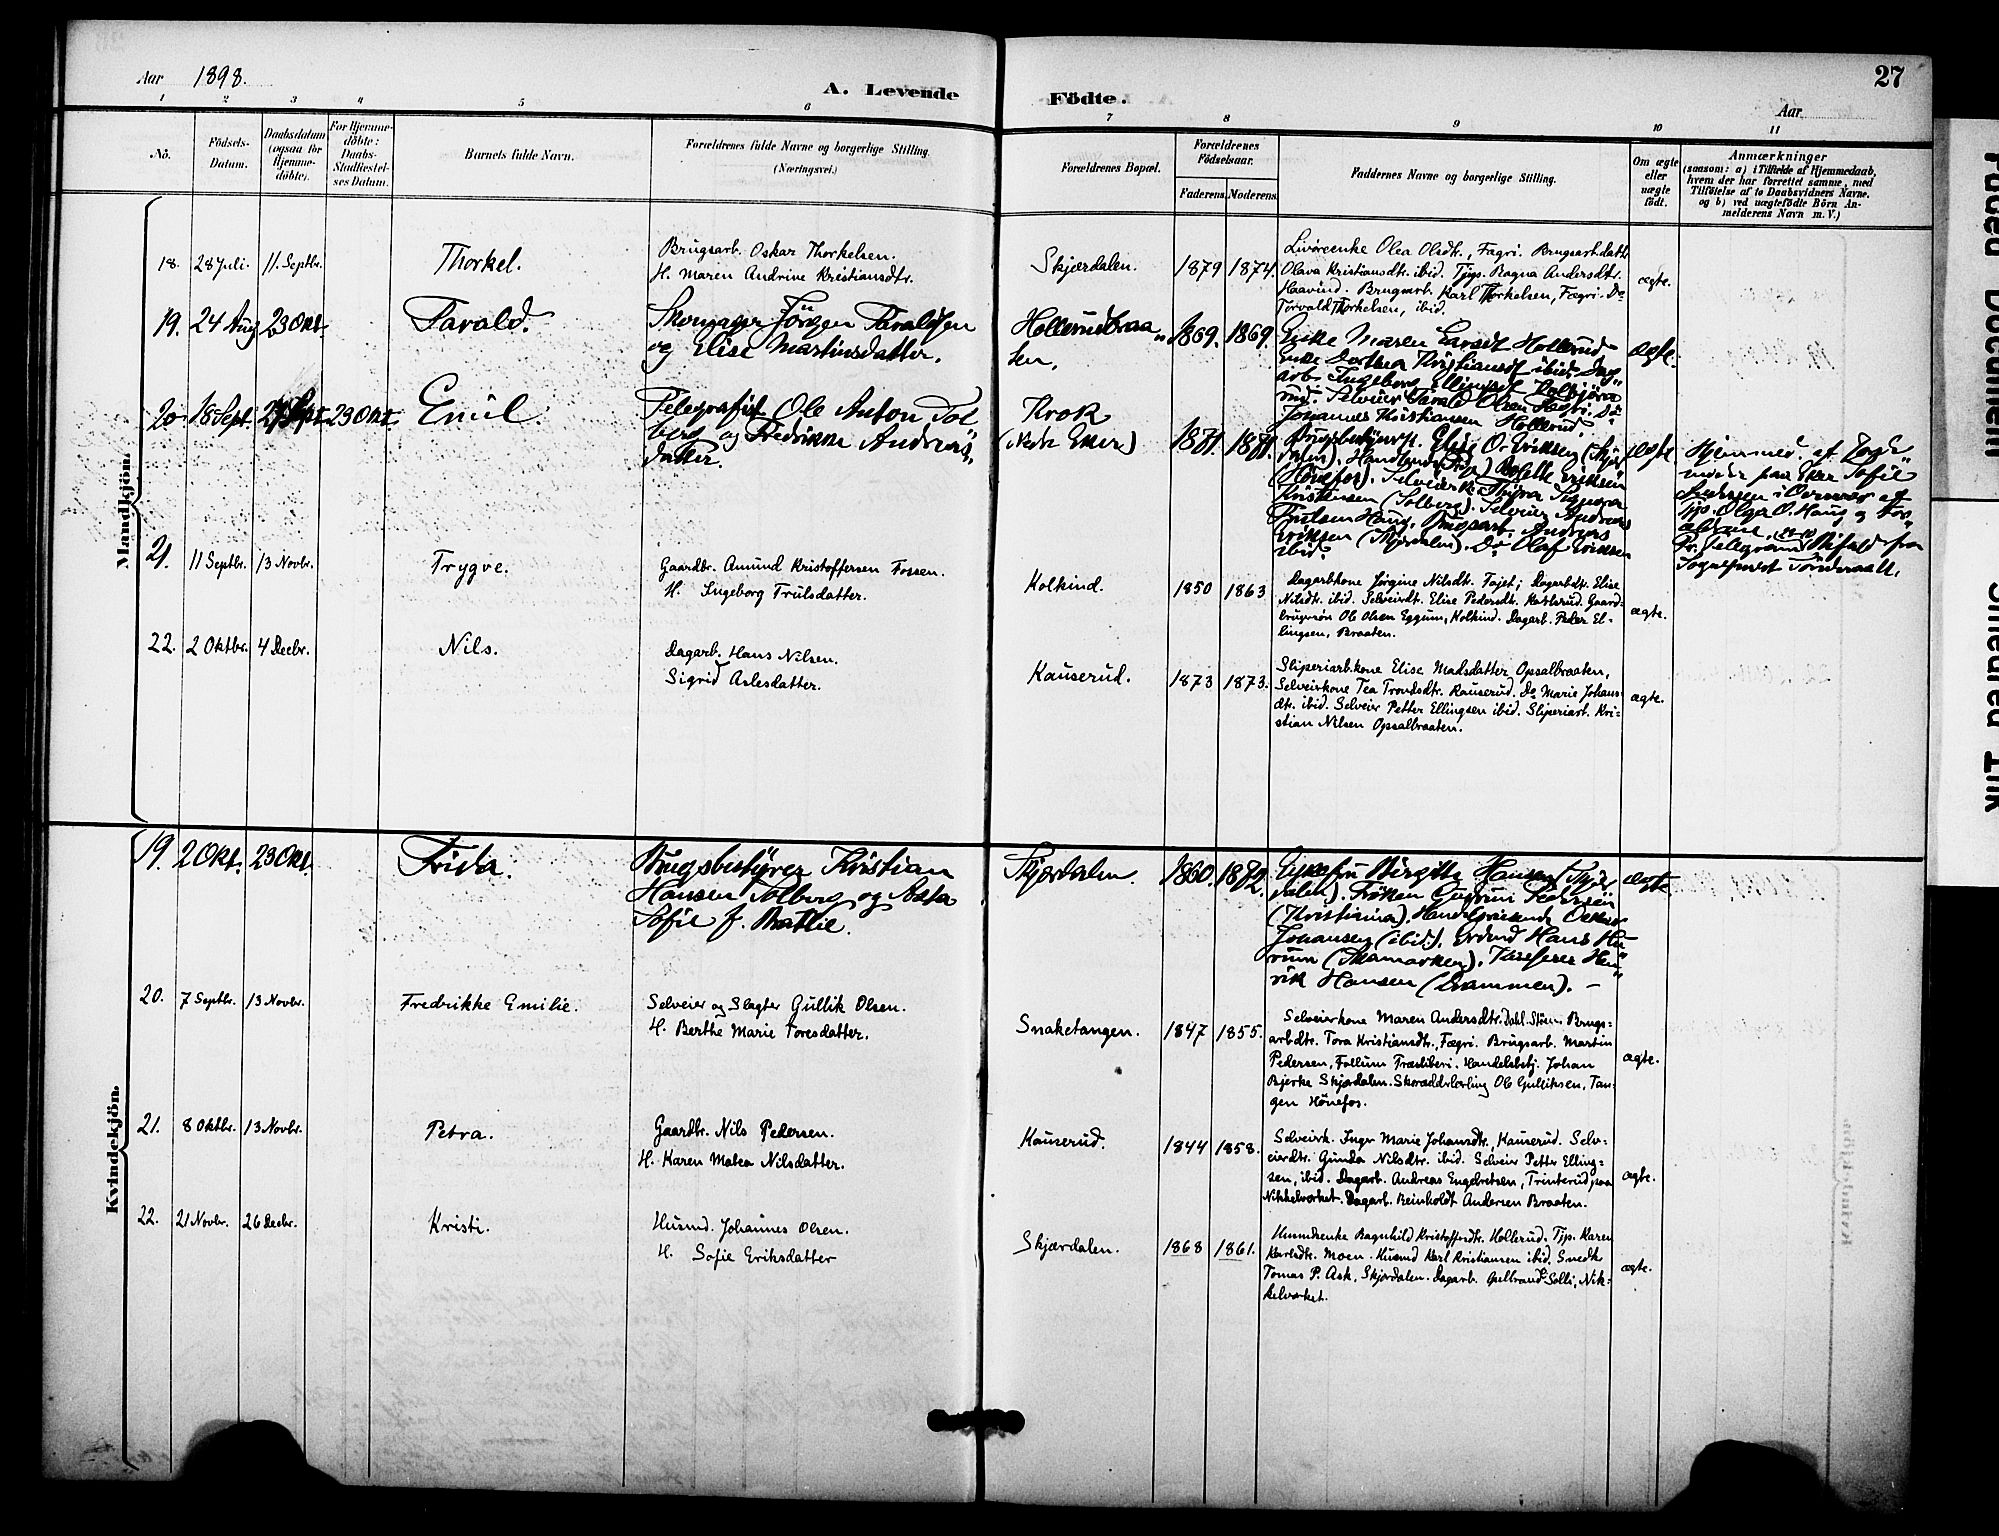 Aar 1898.
A. Levende Födte.
27
Aar
1 2 3 4 5 6 7 8 9 10 11
No.
Födsels-Datum.
Daabsdatum (ogsaa for Hjemme-döbte).
For Hjemme-döbte: Daabs-Stadfæstel-ses Datum.
Barnets fulde Navn.
Forældrenes fulde Navne og borgerlige Stilling.
(Næringsvei.)
Forældrenes Bopæl.
Forældrenes Födselsaar.
Faderens. Moderens.
Faddernes Navne og borgerlige Stilling.
Om ægte eller uægte födt.
Anmærkninger
(saasom: a) i Tilfælde af Hjemmedaab,
hvem der har forrettet samme, med
Tilföielse af to Daabsvidners Navne.
og b) ved uægtefödte Börn An-
melderens Navn m. V.)
Mandkjön.
18. 28 Juli. 11. Septbr. Thorkel.
Brugsarb. Oskar Thorkelsen.
H. Maren Andrine Kristiansdtr.
Skjærdalen. 1879 1874.
Olea Olsdtr., Fagri. Brugsarb.datter
Olava Kristiansdtr. ibid. Tjgp. Ragna Andersdtr.
Haavind. Brugsarb. Karl Thorkelsen, Fægri. Do
Torvald Thorkelsen, ibid.
ægte.
19. 24 Aug 23 Okt. Tarald.
Skomager Jörgen Taraldsen
og Elise Martinsdatter.
Hollerudbraa„
ten.
1869. 1869.
Enke Maren Larsdt Hollerud
Enke Dorthea Kristiansdt ibid. Dag„
arb. Ingeborg Ellingsdt
Selveier Tarald Olsen Fægri. Do
Johannes Kristiansen Hollerud.
ægte.
20. 18 Sept. 23 Okt. Emil.
Telegrafist Ole Anton Sol
berg og Fredrikke Andreas„
datter.
Krok
(Nedre Eker)
1871. 1871.
Brugsbestyrer Elise O. Eriksen (Skjær
dalen). Handlende
(Hönefos).
Kristensen (Solberg). Selveier Andreas
Trulsen Haug. Brugsarb Andreas
Eriksen (Skjærdalen). Do Olaf Eriksen
ibid.
ægte
Hjemmed. af Jorde„
moder paa Eker Sofie
i Overvær af
Tjp. Olga O. Haug og For„
ældrene,
Pr. Telegram
Sognepræst
21. 11 Septbr. 13 Novbr. Trygve.
Gaardbr. Amund Kristoffersen Fossen.
H. Ingeborg Trulsdatter.
Kolkind. 1850 1863
Dagarbkone Jörgine Nilsdt. Fajet; Dagarbdtr. Elise
Nilsdt. ibid. Selveierdt. Elise Pedersdt. Karlsrud. Gaard-
brugersön Ole Olsen Eggum, Kolkind. Dagarb. Peder El-
lingsen, Braaten.
ægte.
22. 2 Oktbr. 4 Decbr. Nils.
Dagarb. Hans Nilsen.
Sigrid Aslesdatter.
Kauserud. 1873 1873.
Sliperiarb.kone Elise Madsdatter Opsalbraaten,
Selveierkone Tea Trondsdtr. Kauserud. Do Marie Johans-
dt. ibid. Selveier Petter Ellingsen ibid. Sliperiarb. Kri-
stian Nilsen Opsalbraaten.
ægte.
Kvindekjön.
19. 2 Okt. 23 Okt. Frida.
Brugsbestyrer Kristian
Hansen Solberg og Asta
Sofie f. Bratlie.
Skjærdalen. 1860. 1872.
Enkefru Birgitte Hansen (Skjær
dalen). Fröken Gudrun Pedersen
(Kristiania). Handelsreisende Oskar
Johansen (ibid). Hans Hu
rum (Skamarken). Kasserer Hen„
rik Hansen (Drammen). –
ægte
20. 7 Septbr. 13 Novbr. Fredrikke Emilie.
Selveier og Slagter Gullik Olsen.
H. Berthe Marie Toresdatter.
Snaketangen. 1847 1855.
Selveierkone Maren Andersdtr. Dahl. Stören. Brugs-
arbdtr. Tora Kristiansdtr., Fægri. Brugsarb. Martin
Pedersen, Follum Træsliberi. Handelsbetj. Johan
Bjerke Skjærdalen. Skoræddrlærling Ole Gulliksen, Tan-
gen Hönefos.
ægte.
21. 8 Oktbr. 13 Novbr. Petra.
Gaardbr. Nils Pedersen.
H. Karen Matea Nilsdatter.
Kauserud. 1844 1858.
Selveierk. Inger Marie Johansdtr., Kauserud. Selv-
eierdtr. Gunda Nilsdtr. ibid. Selveier Petter Elling-
sen, ibid. Dagarb. Andreas Engebretsen, Trinterud, paa
Nikkelverket. Dagarb. Reinholdt Andersen Braaten.
ægte.
22. 21 Novbr. 26 Decbr. Kristi.
Husmd. Johannes Olsen.
H. Sofie Eriksdatter
Skjærdalen. 1868 1861.
Husmdrenke Ragnhild Kristoffersdtr. Hollerud. Tjp. Karen
Karlsdtr. Moen. Husmd Karl Kristiansen ibid. Smedk.
Tomas P. Ask, Skjærdalen. Dagarb. Gulbrand Solli, Nik-
kelværket.
ægte.
Faded Document
Smeared Ink